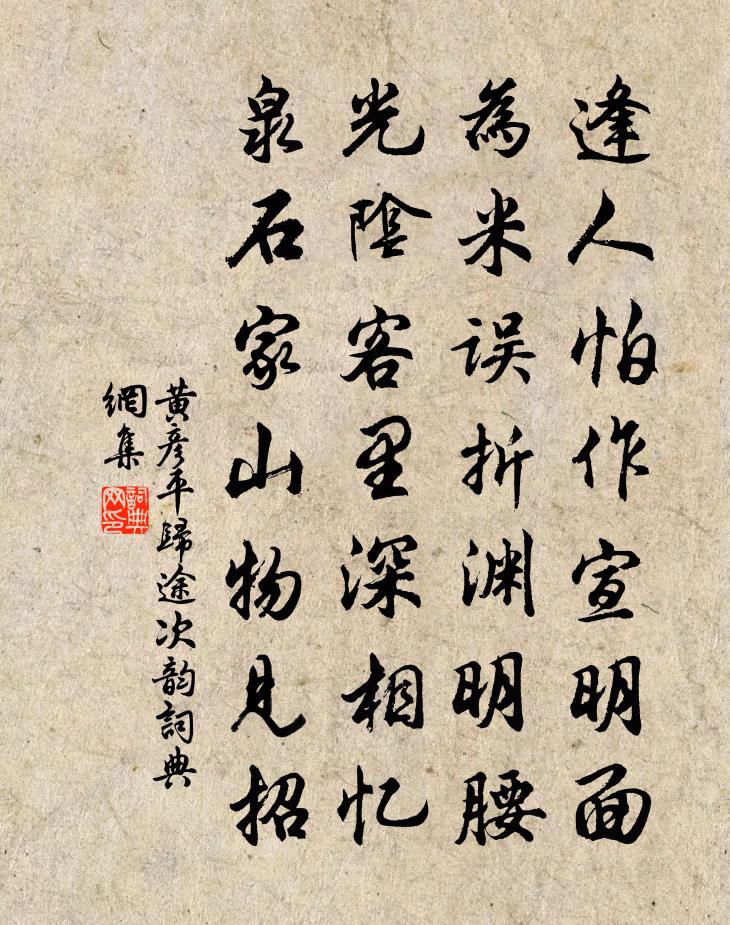 逢人怕作宣明面
為米误折渊明腰
光陰客里深相忆
泉石家山物見招
黄彦平歸途次韵詞典
網集
詞典
网印